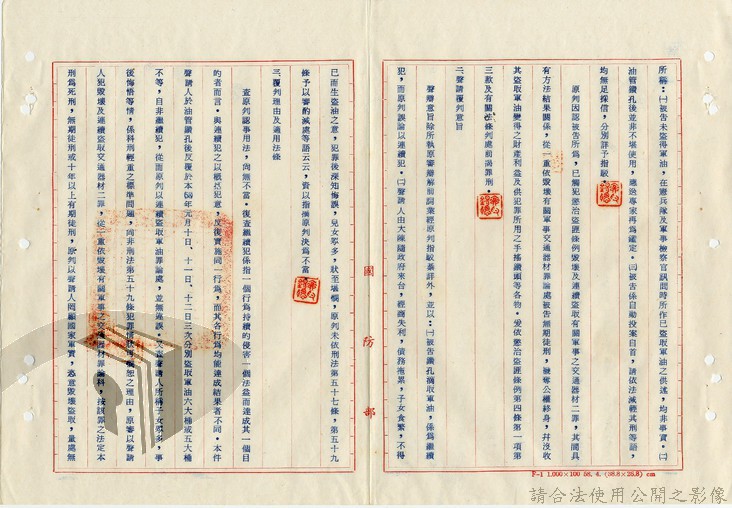 所稱：㈠被告未盜得軍油，在憲兵隊及軍事檢察官訊問時所作已盜取軍油之供述，均非事實。㈡
油管鑽孔後並非不堪使用，應請專家再為鑑定。㈢被告係自動投案自首，請依法減輕其刑等語，
均無足採信，分別詳予指駁。
原判因認被告所為，已觸犯懲治盜匪條例毀壞及連續盜取有關軍事之交通器材二罪，其間具
有方法結果關係，從一重依毀壞有關軍事交通器材罪論處被告無期徒刑，褫奪公權終身，幷沒收
其盜取軍油變得之財產利益及供犯罪所用之手搖鑽頭等各物。爰依懲治盜匪條例第四條第一項第
三款及有關法條判處前揭罪刑。
二、聲請覆判意旨
聲請意旨除所執原審辯解前詞業經原判指駁綦詳外，並以：㈠被告鑽孔竊取軍油，係為繼續
犯，而原判誤論以連續犯。㈡聲請人由大陳隨政府來台，經商失利，債務拖累，子女食繁，不得
已而生盜油之意，犯罪後深知悔誤，兒女眾多，狀至堪憫，原判未依刑法第五十七條，第五十九
條予以審酌減處等語云云，資以指摘原判決為不當。
三、覆判理由及適用法條
查原判認事用法，尚無不當。復查繼續犯係指一個行為持續的侵害一個法益而達成其一個目
的者而言。與連續犯之以概括犯意，反復實施同一行為，而其各行為均能達成結果者不同。本件
聲請人於油管鑽孔後反覆於本㊾年元月十日、十一日、十二日三次分別盜取軍油六大桶或五大桶
不等，自非繼續犯，從而原判以連續盜取軍油罪論處，並無違誤。又查聲請人所稱子女眾多，事
後悔悟等情，係科刑輕重之標準問題，尚非刑法第五十九條犯罪情狀可憫恕之理由，原審以聲請
人犯毀壞及連續盜取交通器材二罪，從一重依毀壞有關軍事之交通器材罪論科，按該罪之法定本
刑為死刑，無期徒刑或十年以上有期徒刑，原判以聲請人罔顧國家軍實，恣意毀壞盜取，量處無
國防部
F-1 1,000×100 56. 4. (38.8×25.8) cm
請合法使用公開之影像